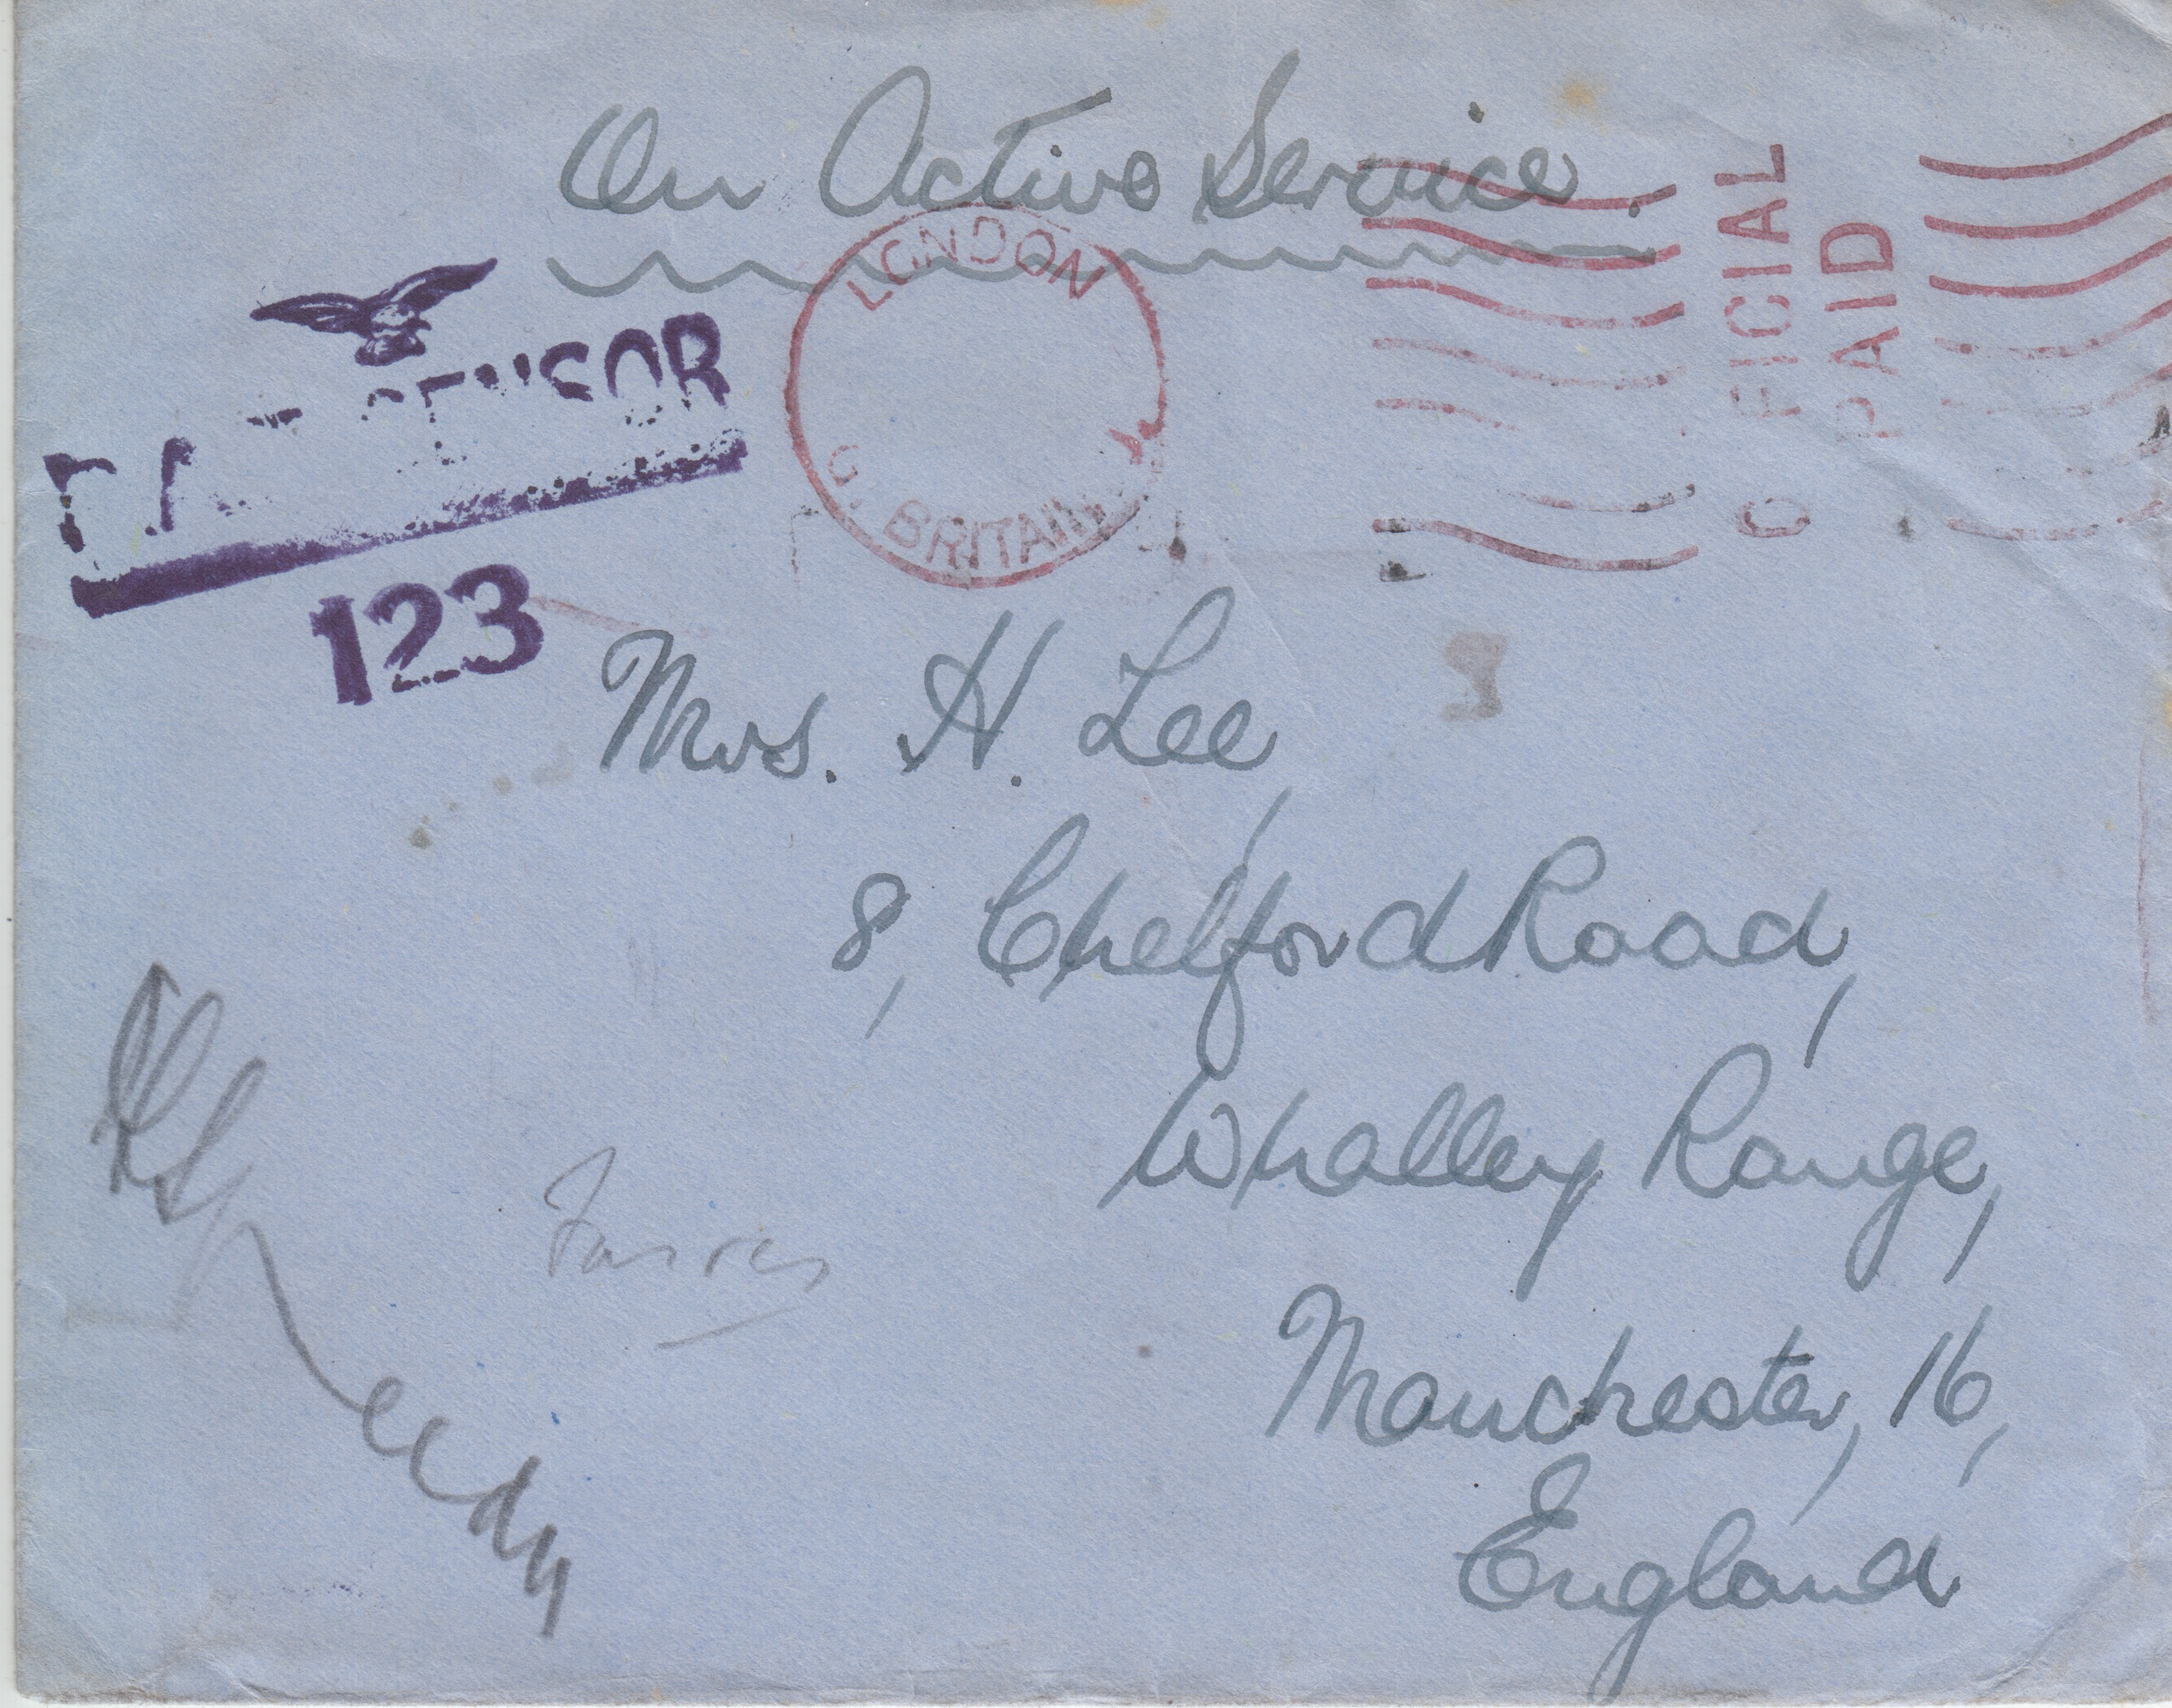 On Active Service.
LONDON
G. BRITAIN
OFFICIAL
PAID
CENSOR
123
Mrs. H. Lee,
8, Chelford Road,
Whalley Range,
Manchester, 16,
England